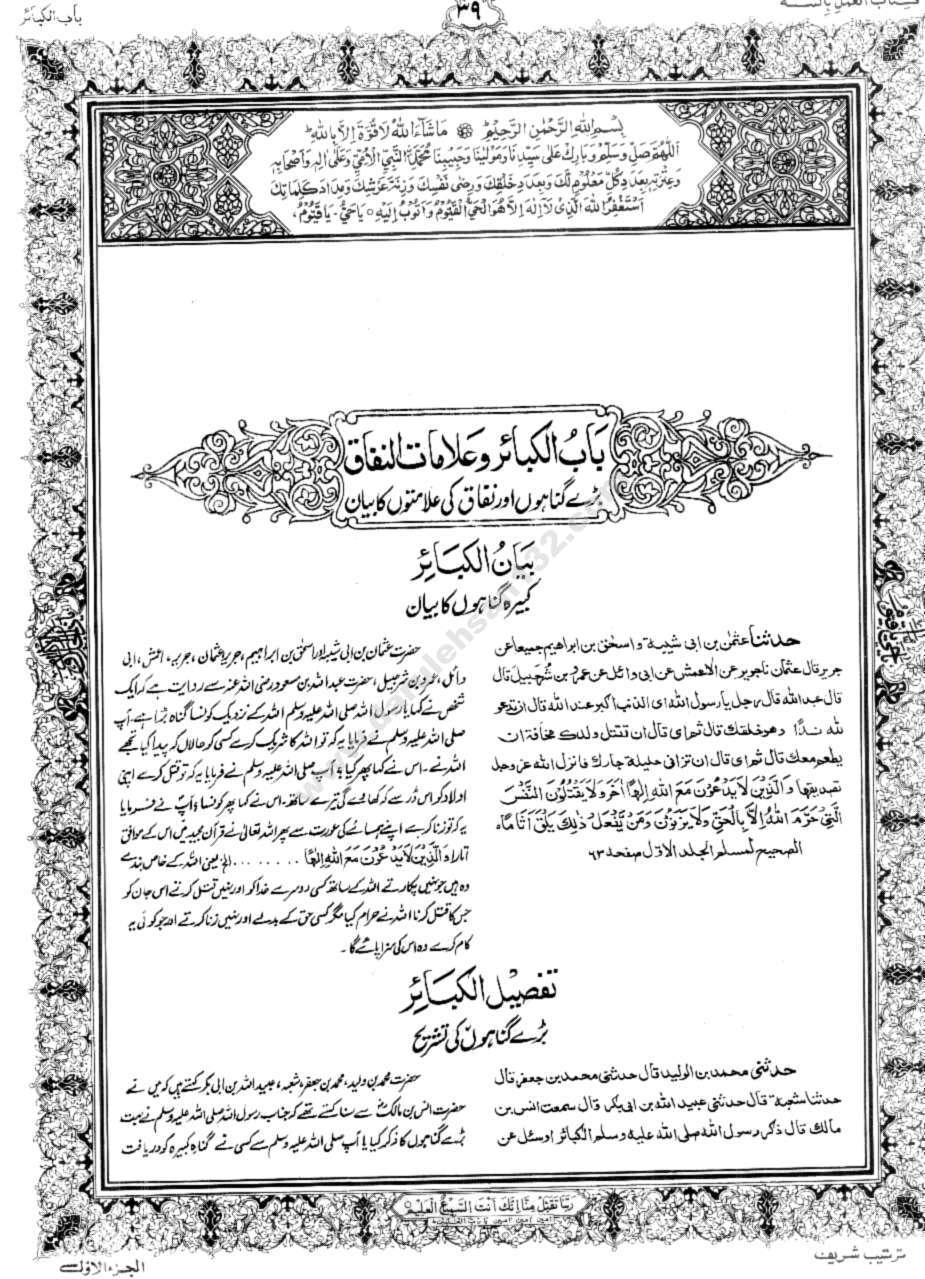 کتاب العمل بالسنة
۳۹
باب الکبائر
بِسْمِ اللهِ الرَّحْمٰنِ الرَّحِيْمِ مَا شَآءَ اللهُ لَا قُوَّةَ اِلَّا بِاللهِ
اَللّٰهُمَّ صَلِّ وَسَلِّمْ وَبَارِكْ عَلٰى سَيِّدِنَا وَمَوْلٰينَا وَحَبِيْبِنَا مُحَمَّدِ النَّبِيِّ الْاُمِّيِّ وَعَلٰى اٰلِهٖ وَاَصْحَابِهٖ
وَعِتْرَتِهٖ بِعَدَدِ كُلِّ مَعْلُوْمٍ لَّكَ وَبِعَدَدِ خَلْقِكَ وَرِضٰى نَفْسِكَ وَزِنَةَ عَرْشِكَ وَمِدَادَ كَلِمَاتِكَ
اَسْتَغْفِرُ اللهَ الَّذِىْ لَآ اِلٰهَ اِلَّا هُوَ الْحَىُّ الْقَيُّوْمُ وَاَتُوْبُ اِلَيْهِ يَا حَىُّ يَا قَيُّوْمُ
بَابُ الکبائر و علامات النفاق
بڑے گناہوں اور نفاق کی علامتوں کا بیان
بَیَانُ الکَبَائِر
کبیرہ گناہوں کا بیان
حدثنا عثمٰن بن ابی شیبة و اسحٰق بن ابراهیم جمیعا عن
جریر قال عثمان نا جریر عن الاعمش عن ابی وائل عن عمرو بن شرحبیل قال
قال عبد الله قال رجل یا رسول الله ای الذنب اکبر عند الله قال ان تدعو
لله نداً وهو خلقك قال ثم ای قال ان تقتل ولدك مخافة ان
یطعم معك قال ثم ای قال ان تزانی حلیلة جارك فانزل الله عز وجل
تصدیقها وَالَّذِیْنَ لَا یَدْعُوْنَ مَعَ اللهِ اِلٰهًا اٰخَرَ وَلَا یَقْتُلُوْنَ النَّفْسَ
الَّتِیْ حَرَّمَ اللهُ اِلَّا بِالْحَقِّ وَلَا یَزْنُوْنَ وَمَنْ یَّفْعَلْ ذٰلِكَ یَلْقَ اَثَامًا ه
الصحیح لمسلم الجلد الاول صفحه ۶۳
حضرت عثمان بن ابی شیبہ اور اسحٰق بن ابراہیم، جریر، عثمان، جریر، اعمش، ابی
وائل، عمرو بن شرجبیل، حضرت عبداللہ بن مسعود رضی اللہ عنہ سے روایت ہے کہ ایک
شخص نے کہا یا رسول اللہ صلی اللہ علیہ وسلم اللہ کے نزدیک کونسا گناہ بڑا ہے۔ آپ
صلی اللہ علیہ وسلم نے فرمایا یہ کہ تو اللہ کا شریک کرے کسی کو حالاں کہ پیدا کیا تجھے
اللہ نے۔ اس نے کہا پھر کیا؟ آپ صلی اللہ علیہ وسلم نے فرمایا یہ کہ تو قتل کرے اپنی
اولاد کو اس ڈر سے کہ کھائے گی تیرے ساتھ۔ اس نے کہا پھر کونسا؟ آپ نے فرمایا
یہ کہ تو زنا کرے اپنے ہمسائے کی عورت سے پھر اللہ تعالیٰ نے قرآن مجید میں اس کے موافق
اتارا وَالَّذِیْنَ لَا یَدْعُوْنَ مَعَ اللهِ اِلٰهًا ....... الخ یعنی اللہ کے خاص بندے
وہ ہیں جو نہیں پکارتے اللہ کے ساتھ کسی دوسرے خدا کو اور نہیں قتل کرتے اس جان کو
جس کا قتل کرنا اللہ نے حرام کیا مگر کسی حق کے بدلے اور نہیں زنا کرتے اور جو کوئی یہ
کام کرے وہ اس کی سزا پائے گا۔
تفصیل الکبائِر
بڑے گناہوں کی تشریح
حدثنی محمد بن الولید قال حدثنی محمد بن جعفر قال
حدثنا شعبة قال حدثنی عبید الله بن ابی بکر قال سمعت انس بن
مالك قال ذکر رسول الله صلی الله علیه وسلم الکبائر او سئل عن
حضرت محمد بن ولید، محمد بن جعفر، شعبہ، عبید اللہ بن ابی بکر کہتے ہیں کہ میں نے
حضرت انس بن مالک سے سنا کہتے تھے کہ جناب رسول اللہ صلی اللہ علیہ وسلم نے بہت
بڑے گناہوں کا ذکر کیا یا آپ صلی اللہ علیہ وسلم سے کسی نے گناہ کبیرہ کو دریافت
رَبَّنَا تَقَبَّلْ مِنَّا اِنَّكَ اَنْتَ السَّمِيْعُ الْعَلِيْمُ
ترتیب شریف
الجزء الاول